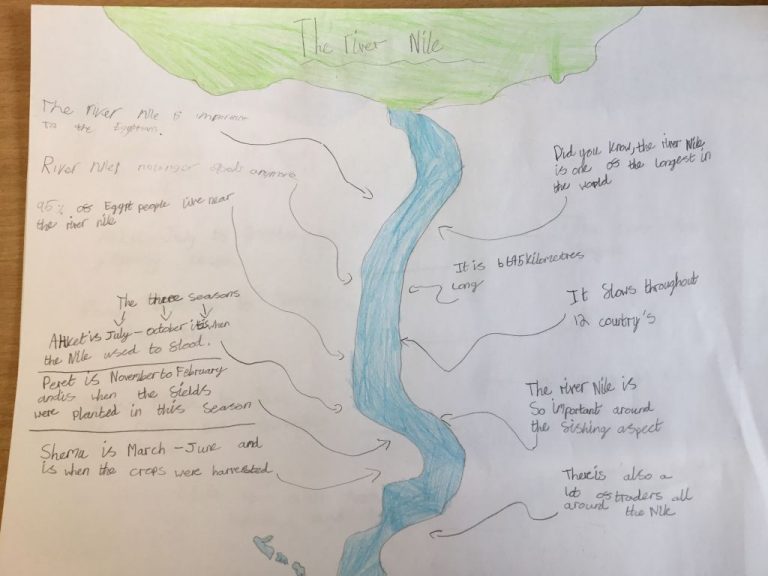 The river Nile
The river Nile is important
to the Egyptians.
River Niles nolonger floods anymore
95% of Egypt people live near
the river nile
The three seasons
Ahket is July - october it is when
the Nile used to flood.
Peret is November to February
and is when the fields
were planted in this season
Shemu is March - June and
is when the crops were harvested
Did you know, the river Nile
is one of the longest in
the world
It is 6695 kilometres
long
It flows throughout
12 country's
The river Nile is
so important around
the fishing aspect
There is also a
lot of traders all
around the Nile